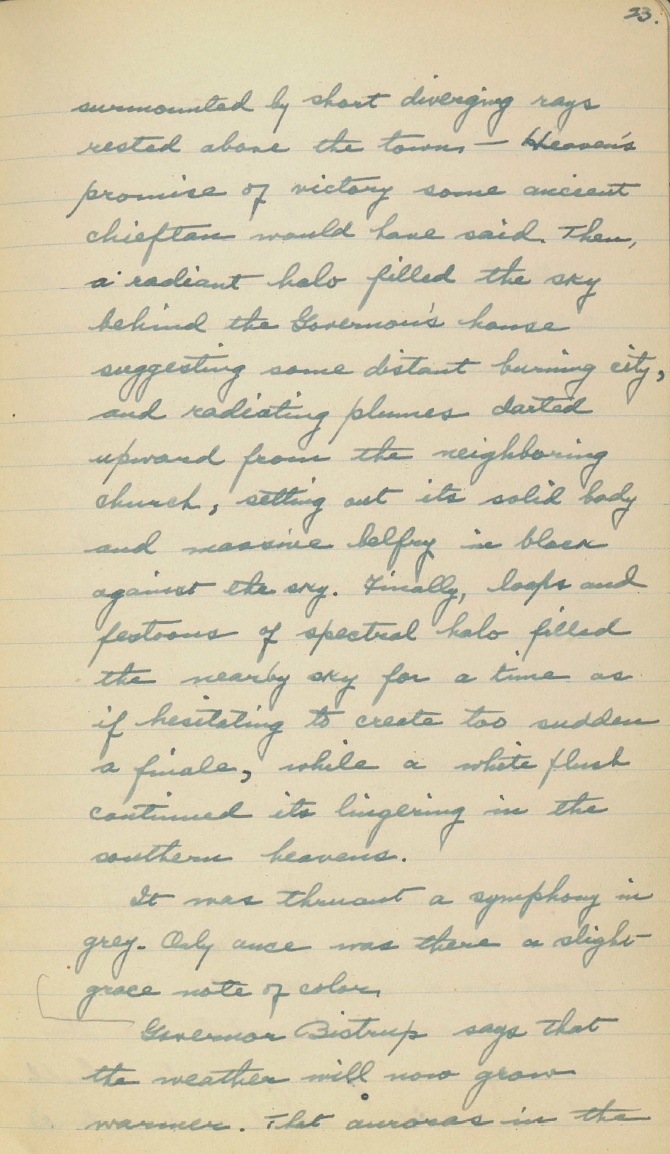 23.
surmounted by short diverging rays
rested above the town, — Heaven's
promise of victory some ancient
chieftan would have said. Then,
a radiant halo filled the sky
behind the Governor's house
suggesting some distant burning city,
and radiating plumes darted
upward from the neighboring
church, setting out its solid body
and massive belfry in black
against the sky. Finally, loops and
festoons of spectral halo filled
the nearby sky for a time as
if hesitating to create too sudden
a finale, while a white flush
continued its lingering in the
southern heavens.
It was thruout a symphony in
grey. Only once was there a slight
grace note of color.
Governor Bistrup says that
the weather will now grow
warmer. That auroras in the